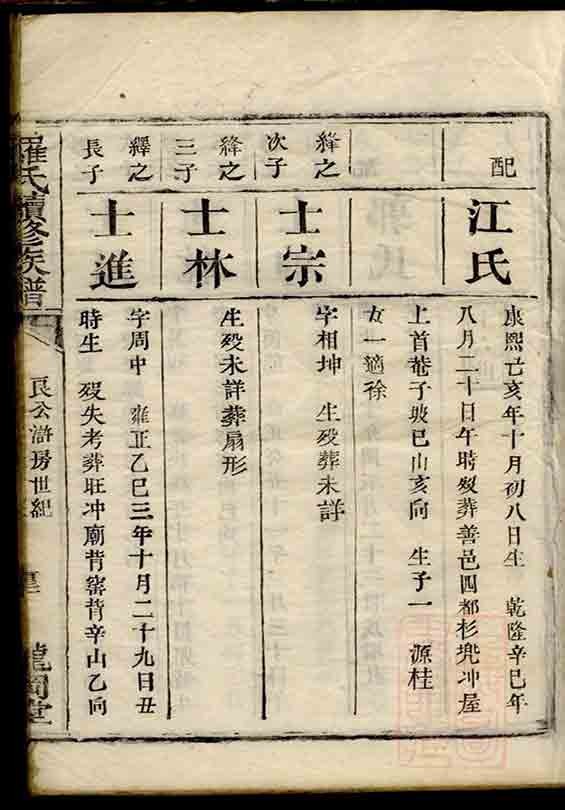 配
江氏
康熙丁亥年十月初八日生 乾隆辛巳年
八月二十日午時歿葬善邑四都杉兜冲屋
上首菴子坡巳山亥向 生子一 源桂
女一適徐
絳之
次子
士宗
字相坤 生歿葬未詳
絳之
三子
士林
生歿未詳葬扇形
繹之
長子
士進
字周中 雍正乙巳三年十月二十九日丑
時生 歿失考葬旺冲廟背窰背辛山乙向
羅氏續修族譜
良公滸房世紀